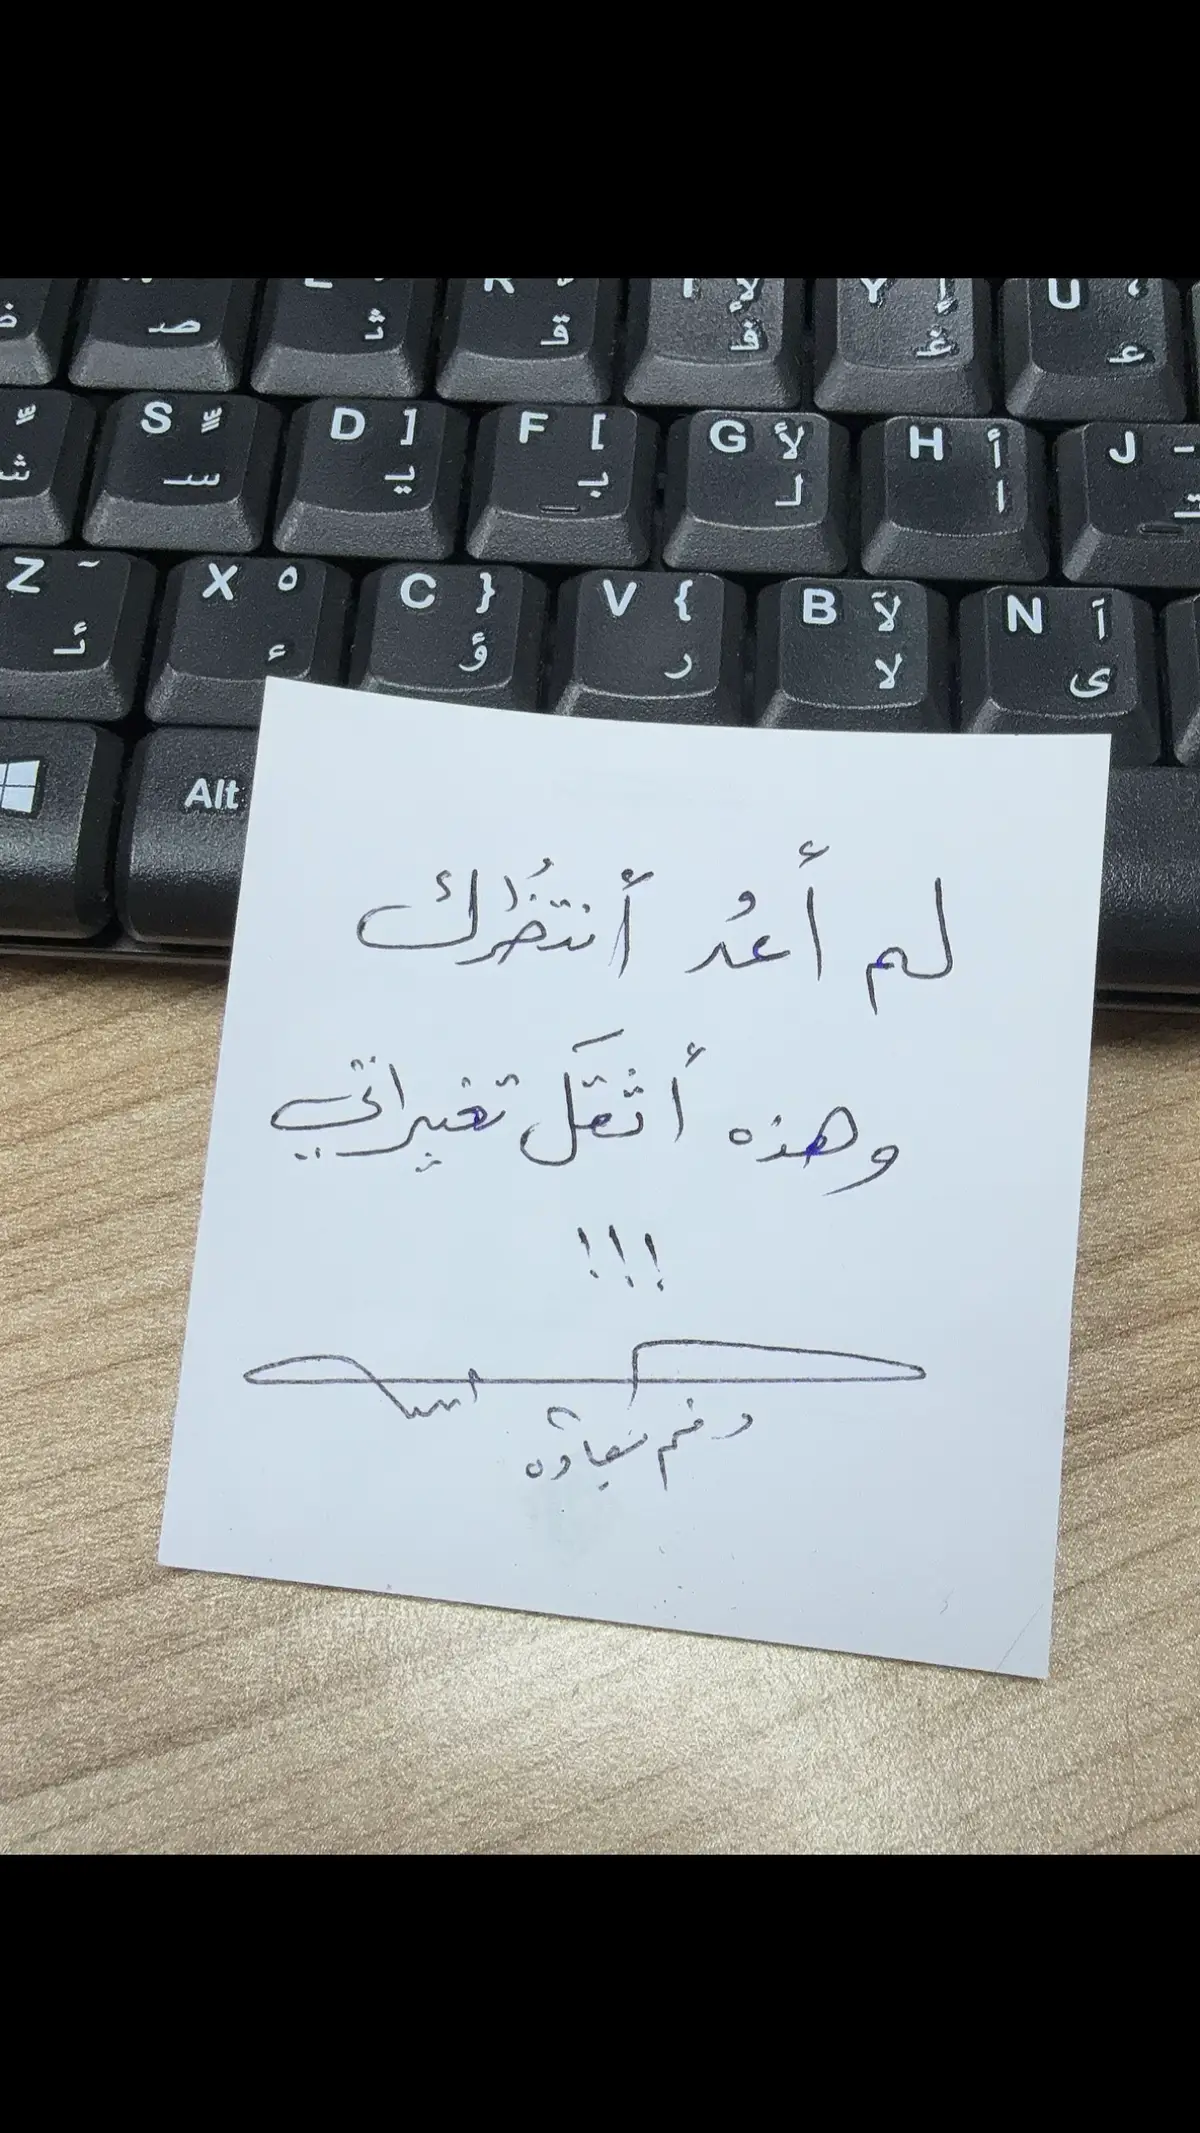 ص ث ق لإ ف Y إ غ U ‘ ع
S س D [ ي F ] ب G لأ ل H أ ا J ـ ت
Z ~ ئ X ْ ء C } ؤ V { ر B لآ لا N آ ى
Alt
لم أعُد أنتظرُك
وهذه أثقَل تغيراتي
!!!